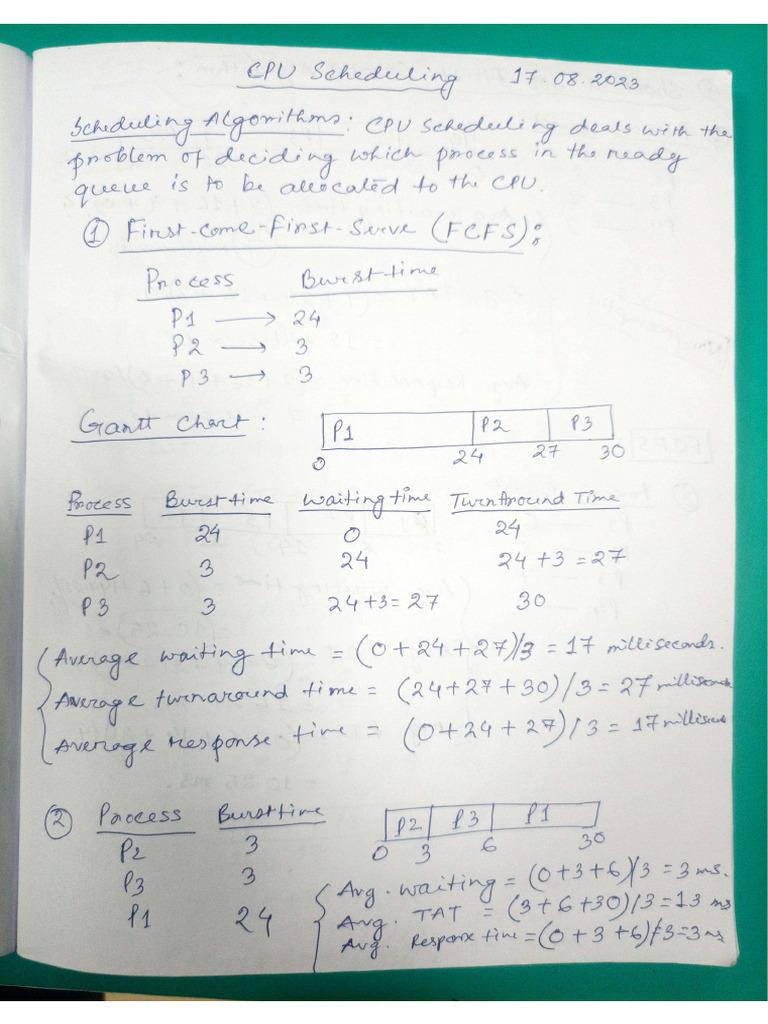 CPU Scheduling 17.08.2023
Scheduling Algorithms: CPU Scheduling deals with the
problem of deciding which process in the ready
queue is to be allocated to the CPU.
① First-Come-First-Serve (FCFS):
Process Burst time
P1 → 24
P2 → 3
P3 → 3
Gantt Chart: P1 P2 P3
0 24 27 30
Process Burst time Waiting time TurnAround Time
P1 24 0 24
P2 3 24 24+3=27
P3 3 24+3=27 30
Average waiting time = (0+24+27)/3 = 17 milliseconds.
Average turnaround time = (24+27+30)/3 = 27 milliseconds
Average response time = (0+24+27)/3 = 17 millisec
② Process Burst time P2 P3 P1
0 3 6 30
P2 3
P3 3
P1 24
Avg. waiting = (0+3+6)/3 = 3 ms.
Avg. TAT = (3+6+30)/3 = 13 ms
Avg. Response time = (0+3+6)/3 = 3 ms